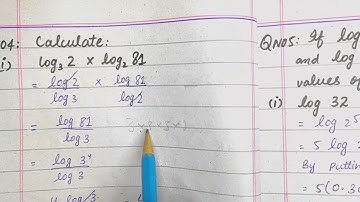 04: Calculate:
i) log₃ 2 × log₂ 81
= log 2 / log 3 × log 81 / log 2
= log 81 / log 3
= log 3⁴ / log 3
4 log 3
QNO5: If log
and log
values of
(i) log 32
= log 2⁵
= 5 log 2
By Puttin
= 5(0.30